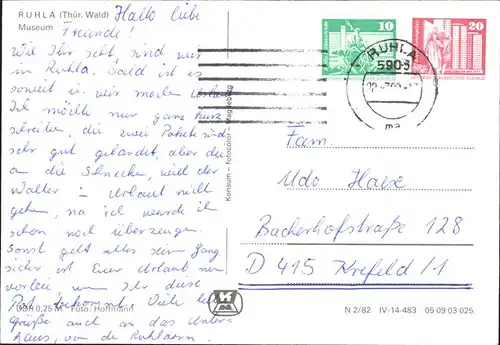 RUHLA (Thür. Wald)
Museum
Hallo liebe
Freunde!
Wie Ihr seht, sind wir
in Ruhla. Bald ist es
soweit u. wir machen Urlaub
Ich möchte nur ganz kurz
schreiben, die zwei Pakete sind
sehr gut gelandet, aber du
an die Schnecken, weil der
Walter in Urlaub nicht
gehen, na ich werde ihn
schon noch überzeugen.
Sonst geht alles sein Gang
sicher ist Euer Urlaub nun
vorbei, wenn Ihr diese
Post bekommt. Viele liebe
Grüße auch an das Unter-
haus, von de Ruhlaern.
DDR 0,25 M Foto: Hoffmann
Konsum – fotocolor – Magdeburg
10
20
RUHLA
5906
ma
Fam.
Udo Haxe
Backerhofstraße 128
D 415 Krefeld /1
N 2/82 IV-14-483 05 09 03 025